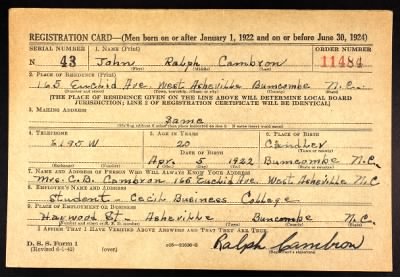 REGISTRATION CARD—(Men born on or after January 1, 1922 and on or before June 30, 1924)
SERIAL NUMBER 1. NAME (Print) ORDER NUMBER
N 43 John Ralph Cambron 11484
(First) (Middle) (Last)
2. PLACE OF RESIDENCE (Print)
165 Euclid Ave. West Asheville Buncombe N.C.
(Number and street) (Town, township, village, or city) (County) (State)
[THE PLACE OF RESIDENCE GIVEN ON THE LINE ABOVE WILL DETERMINE LOCAL BOARD
JURISDICTION; LINE 2 OF REGISTRATION CERTIFICATE WILL BE IDENTICAL]
3. MAILING ADDRESS
Same
[Mailing address if other than place indicated on line 2. If same insert word same]
4. TELEPHONE 5. AGE IN YEARS 6. PLACE OF BIRTH
5195W 20 Candler
DATE OF BIRTH (Town or county)
Apr. 5 1922 Buncombe N.C.
(Exchange) (Number) (Mo.) (Day) (Yr.) (State or country)
7. NAME AND ADDRESS OF PERSON WHO WILL ALWAYS KNOW YOUR ADDRESS
Mrs. C.B. Cambron 165 Euclid Ave. West Asheville N.C
8. EMPLOYER'S NAME AND ADDRESS
Student - Cecil Business College
9. PLACE OF EMPLOYMENT OR BUSINESS
Haywood St - Asheville Buncombe N.C.
(Number and street or R. F. D. number) (Town) (County) (State)
I AFFIRM THAT I HAVE VERIFIED ABOVE ANSWERS AND THAT THEY ARE TRUE.
D. S. S. Form 1
(Revised 6-1-42) (over)
Ralph Cambron
(Registrant's signature)